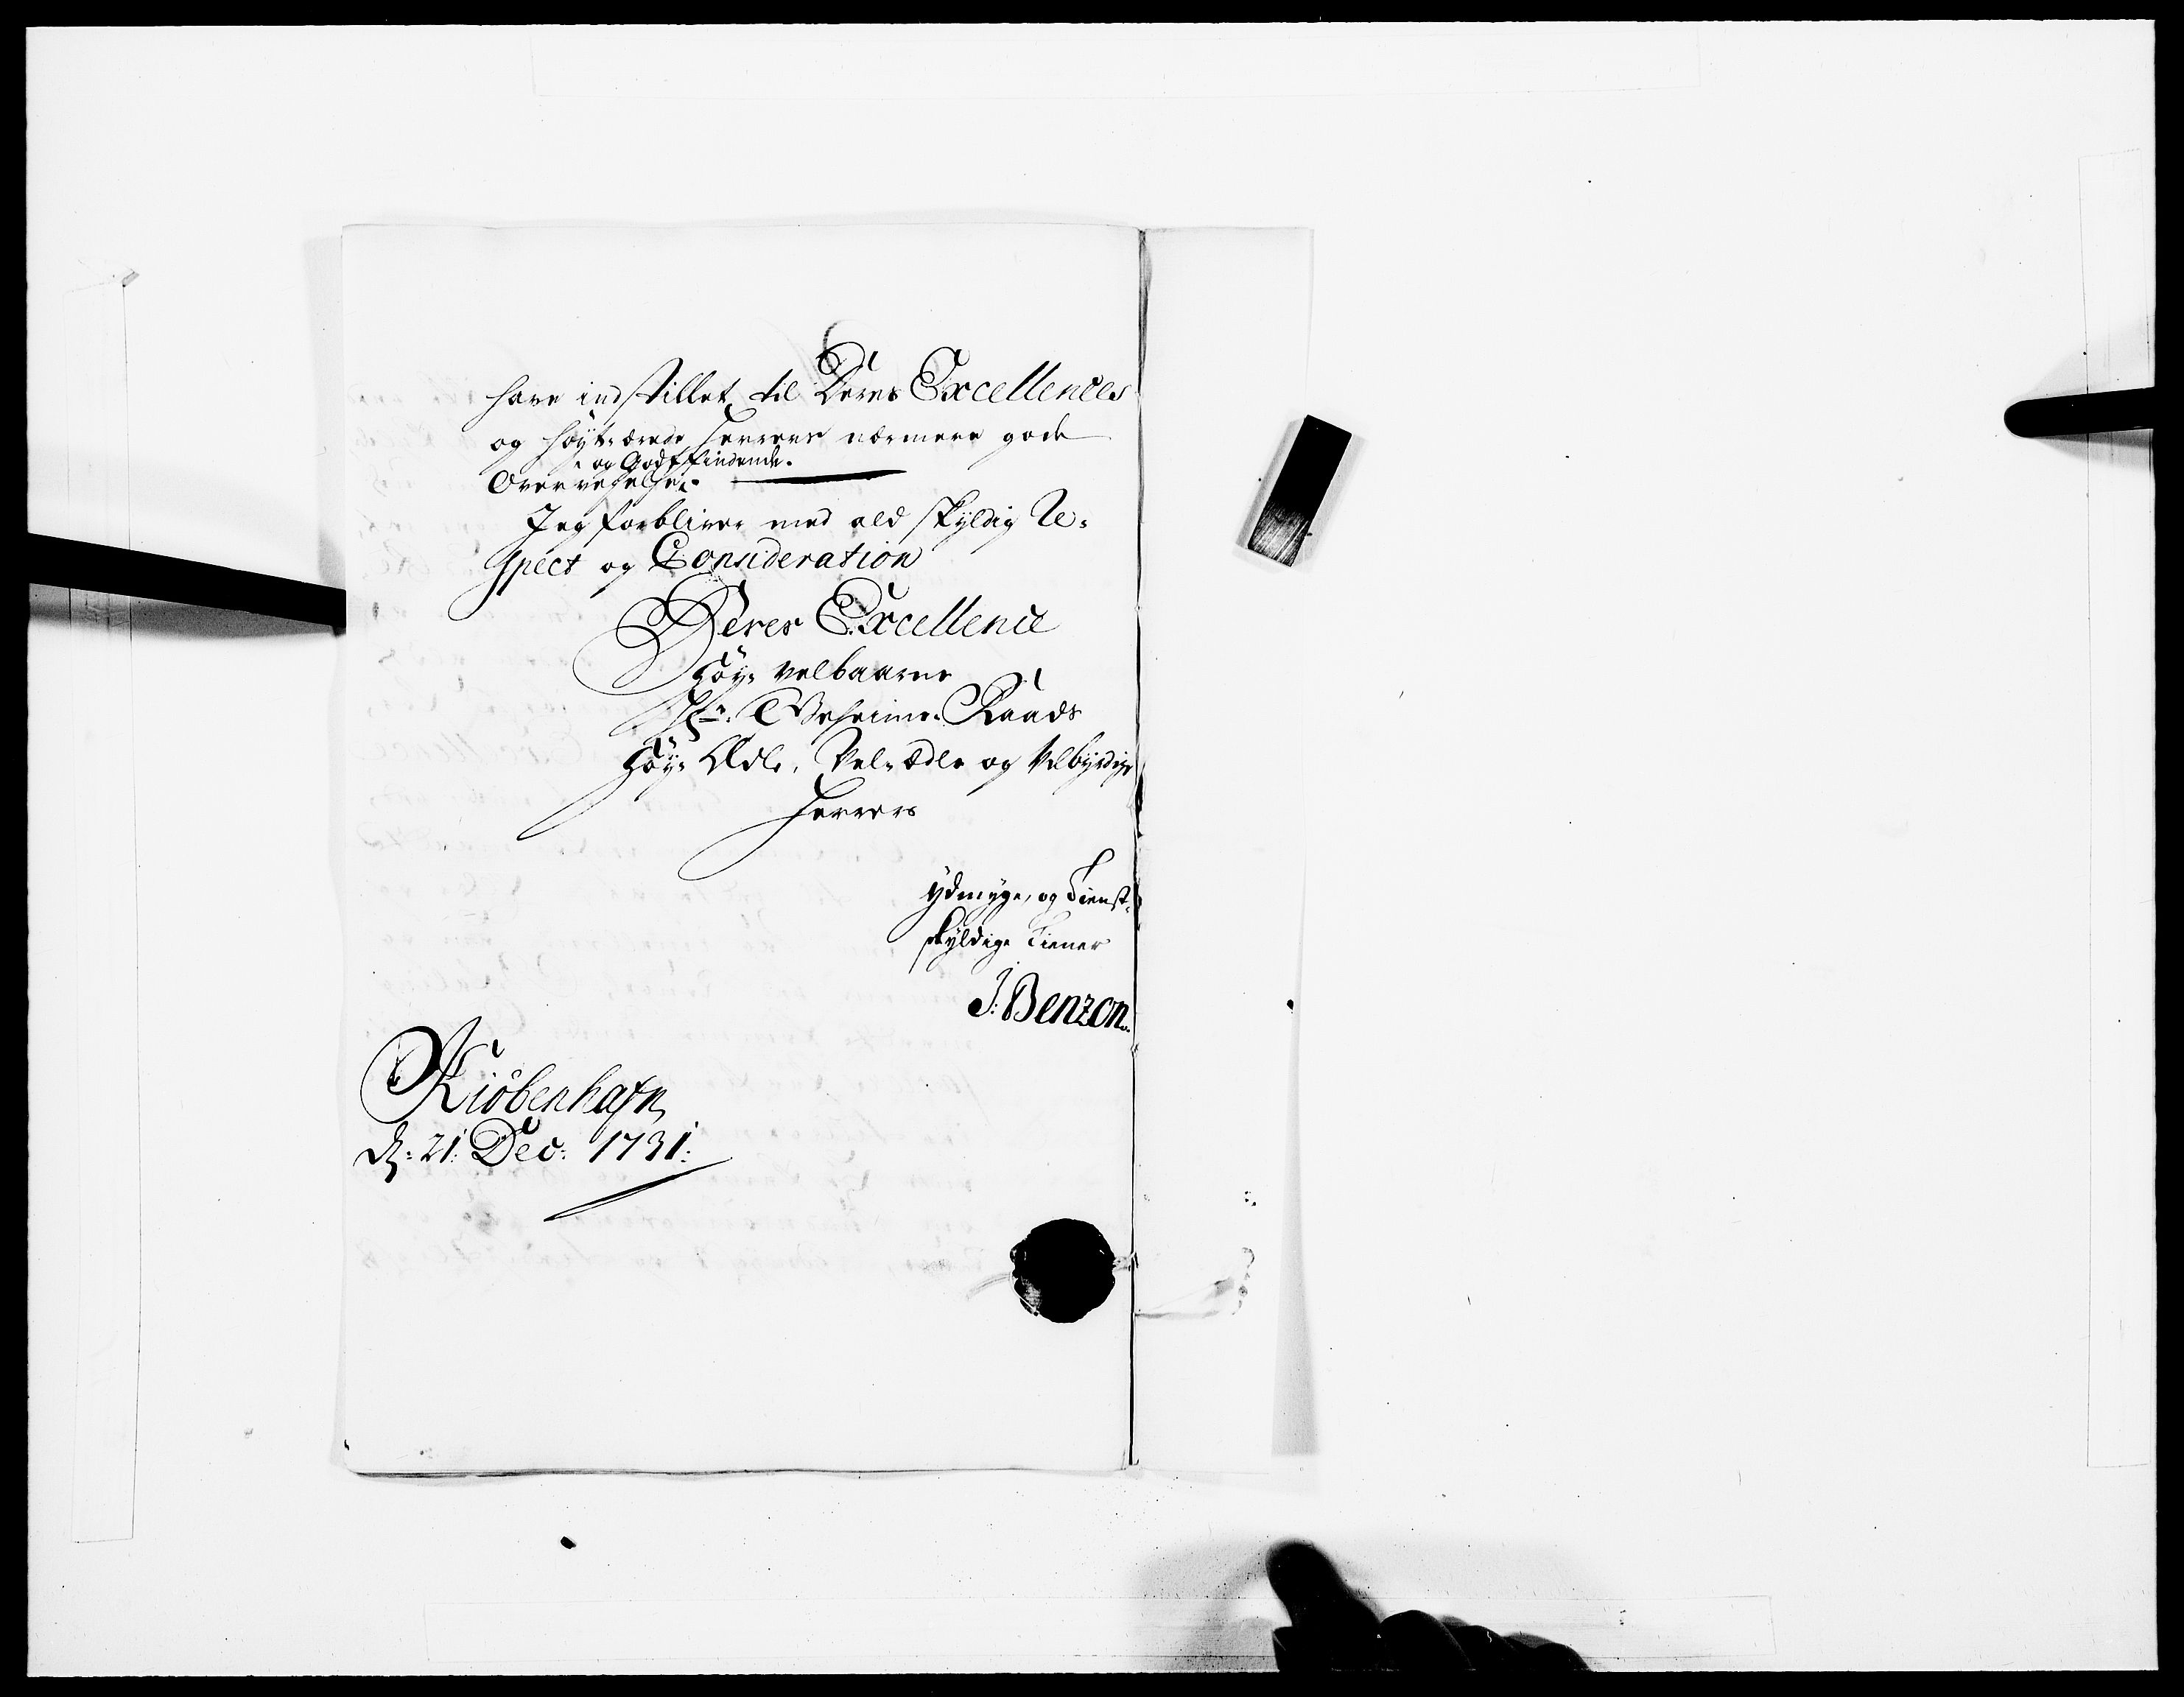 have indstillet til Deres Excellences
og høyt ærede Herrers nærmere gode
og Godtfindende.
Overveyelse.
Jeg forbliver med ald skyldig Re-
spect og Consideration
Deres Excellence
Høy- velbaarne
Hr: Geheime- Raads
Høy- Ædle, Vel-ædle og Velbyrdige
Herrers
ydmyge, og Tienst-
skyldige Tiener
J: Benzon.
Kiöbenhafn
d: 21: Dec: 1731: